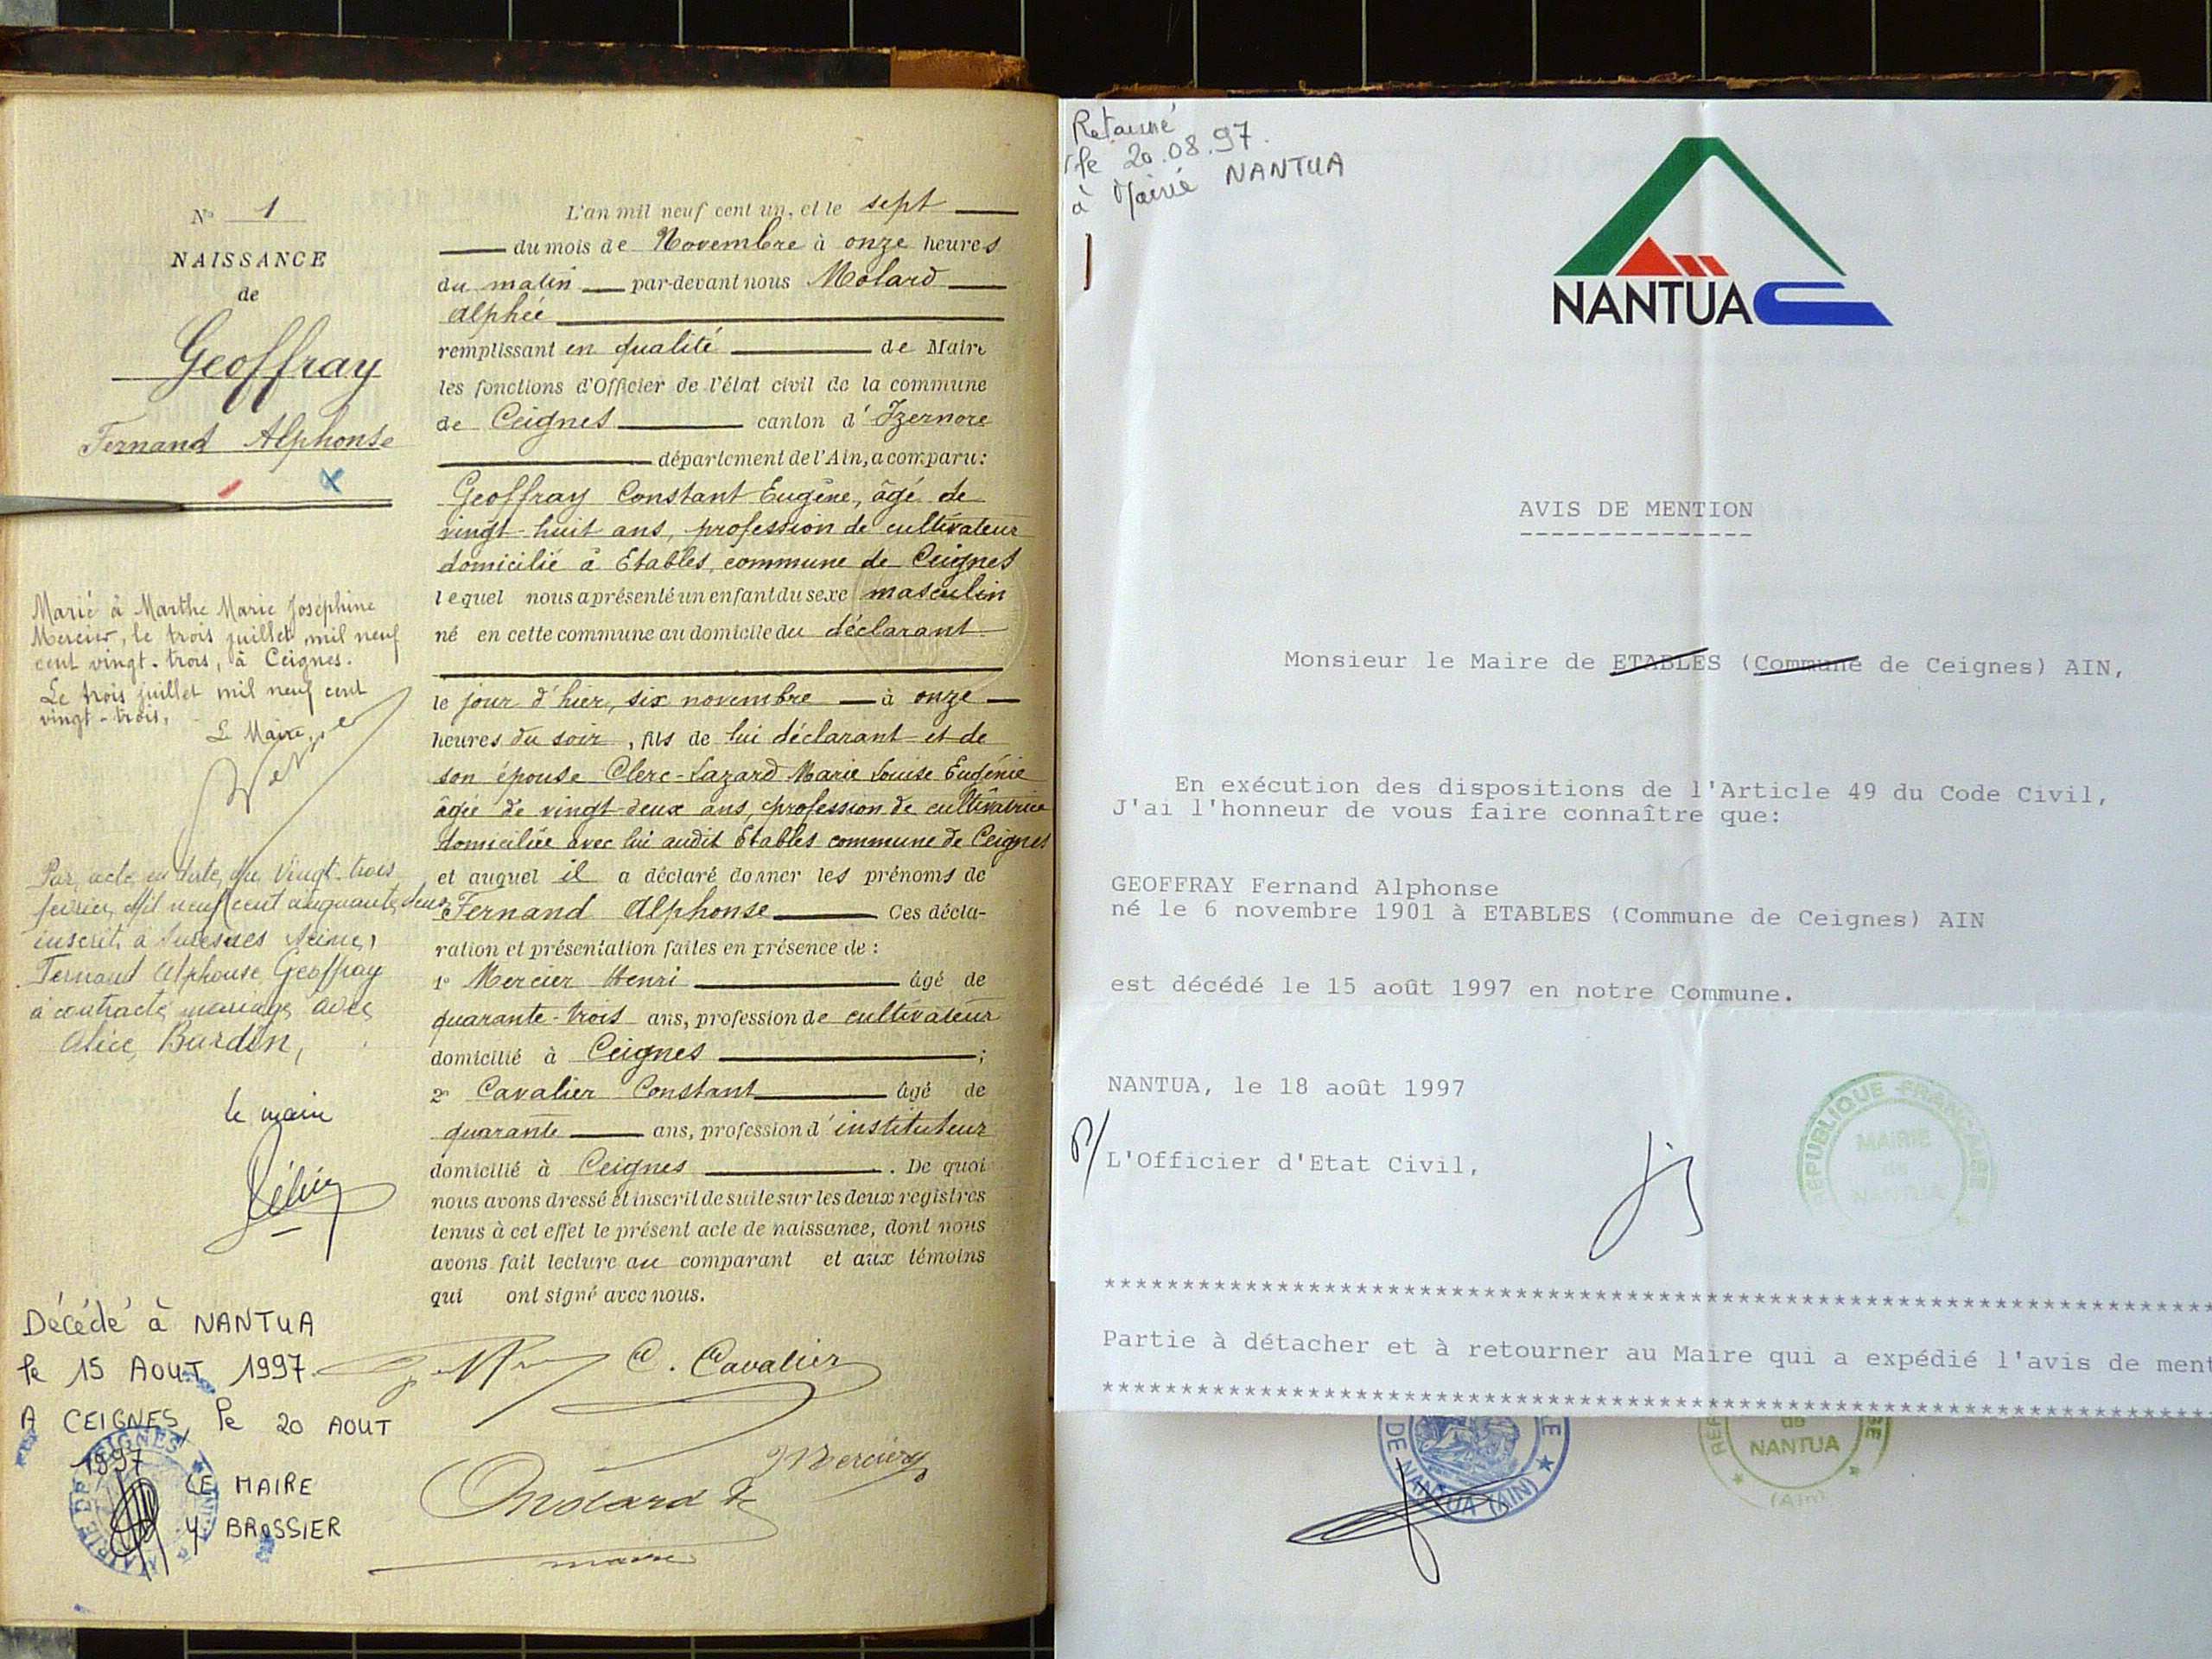 N° 1
NAISSANCE
de
Geoffray
Fernand Alphonse
Marié à Marthe Marie Joséphine
Mercier, le trois juillet mil neuf
cent vingt-trois, à Ceignes.
Le trois juillet mil neuf cent
vingt-trois,
Le Maire,
Par acte en date du vingt-trois
février mil neuf cent cinquante deux
inscrit à Suresnes Seine,
Fernand Alphonse Geoffray
a contracté mariage avec
Alice Burdin,
le maire
Décédé à NANTUA
le 15 AOUT 1997.
A CEIGNES, le 20 AOUT
1997
LE MAIRE
Y BROSSIER
MAIRIE DE CEIGNES
L'an mil neuf cent un, et le sept
du mois de Novembre à onze heures
du matin par-devant nous Molard
Alphée
remplissant en qualité de Maire
les fonctions d'Officier de l'état civil de la commune
de Ceignes canton d'Izernore
département de l'Ain, a comparu:
Geoffray Constant Eugène, âgé de
vingt-huit ans, profession de cultivateur
domicilié à Etables, commune de Ceignes
lequel nous a présenté un enfant du sexe masculin
né en cette commune au domicile du déclarant
le jour d'hier, six novembre à onze
heures du soir, fils de lui déclarant et de
son épouse Clerc-Lazard Marie Louise Eugénie
âgée de vingt-deux ans, profession de cultivatrice
domiciliée avec lui audit Etables commune de Ceignes
et auquel il a déclaré donner les prénoms de
Fernand Alphonse Ces décla-
ration et présentation faites en présence de :
1° Mercier Henri âgé de
quarante-trois ans, profession de cultivateur
domicilié à Ceignes ;
2° Cavalier Constant âgé de
quarante ans, profession d'instituteur
domicilié à Ceignes . De quoi
nous avons dressé et inscrit de suite sur les deux registres
tenus à cet effet le présent acte de naissance, dont nous
avons fait lecture au comparant et aux témoins
qui ont signé avec nous.
C. Cavalier
Mercier
Molard
maire
Retourné
le 20.08.97.
à Mairie NANTUA
NANTUA
AVIS DE MENTION
Monsieur le Maire de ETABLES (Commune de Ceignes) AIN,
En exécution des dispositions de l'Article 49 du Code Civil,
J'ai l'honneur de vous faire connaître que:
GEOFFRAY Fernand Alphonse
né le 6 novembre 1901 à ETABLES (Commune de Ceignes) AIN
est décédé le 15 août 1997 en notre Commune.
NANTUA, le 18 août 1997
P/
L'Officier d'Etat Civil,
REPUBLIQUE FRANCAISE
MAIRIE
de
NANTUA
Partie à détacher et à retourner au Maire qui a expédié l'avis de ment
DE NANTUA (AIN)
de
NANTUA
(Ain)